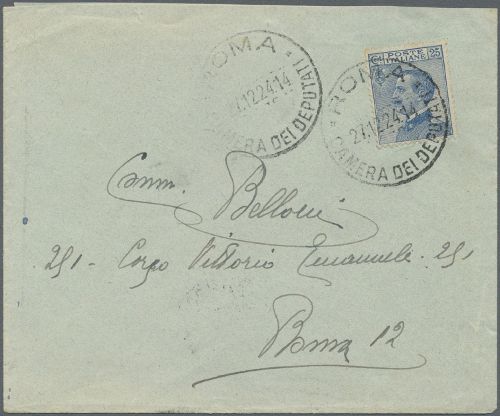 ROMA
7.12.24.14
CAMERA DEI DEPUTATI
POSTE ITALIANE 25
ROMA
27.12.24.14
CAMERA DEI DEPUTATI
Comm.
Belloni
251 - Corso Vittorio Emanuele 251
Roma 12